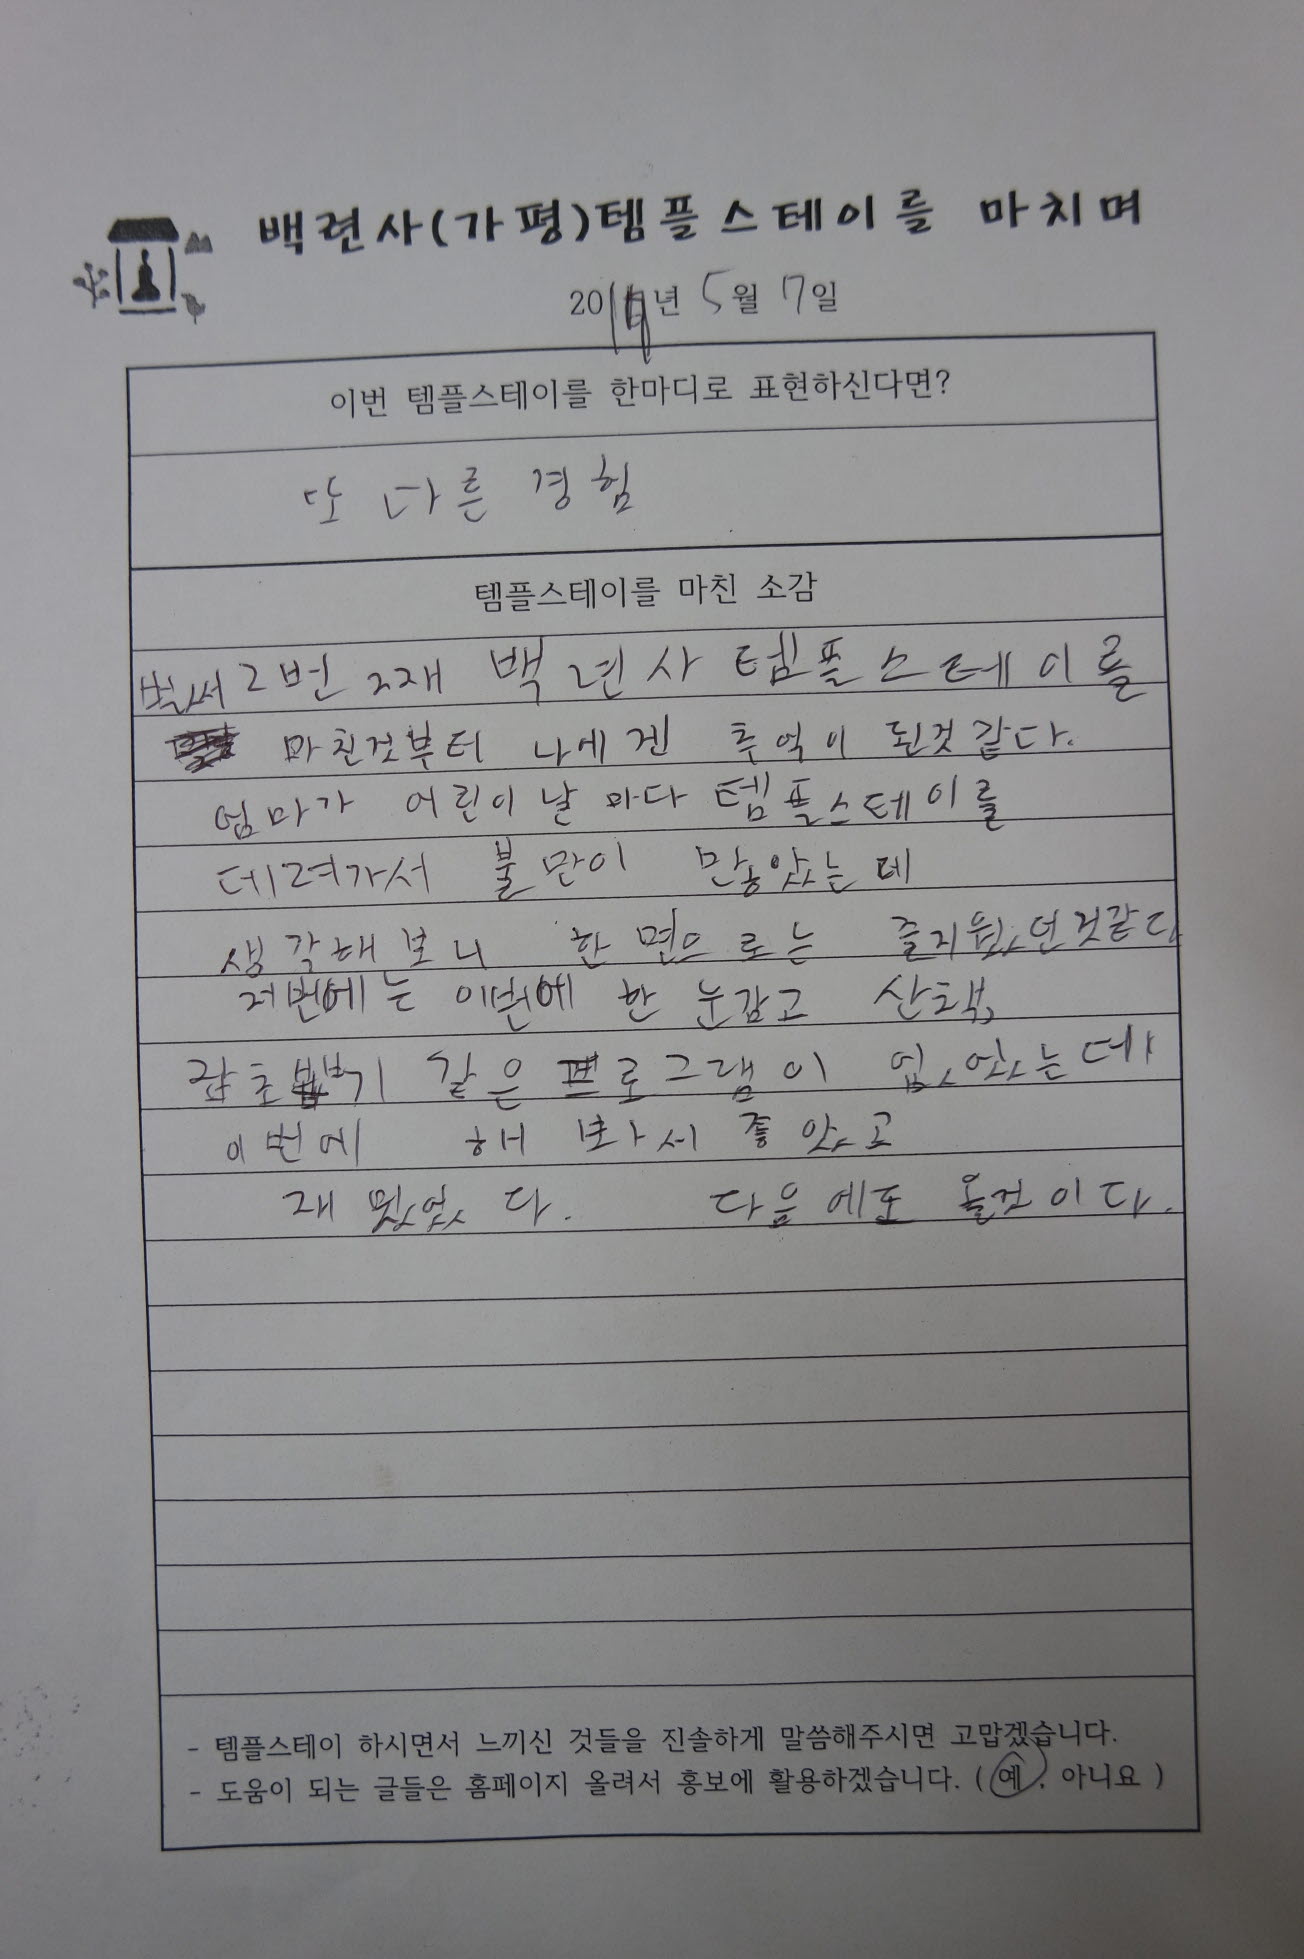 백련사(가평)템플스테이를 마치며
년 5월 17일
이번 템플스테이를 한마디로 표현하신다면?
또 다른 경험
템플스테이를 마친 소감
벌써 2번 째 백련사 템플스테이를
마친것부터 나에겐 추억이 된것같다.
엄마가 어린이날 마다 템플스테이를
데려가서 불만이 많았는데
생각해보니 한면으로는 즐거웠던것같다
저번에는 이번에 한 눈감고 산책,
잡초뽑기 같은 프로그램이 없었는데
이번에 해 봐서 좋았고
재밌었다. 다음에또 올것이다.
- 템플스테이 하시면서 느끼신 것들을 진솔하게 말씀해주시면 고맙겠습니다.
- 도움이 되는 글들은 홈페이지 올려서 홍보에 활용하겠습니다. ( 예 , 아니요 )